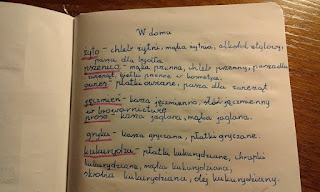 W domu
żyto - chleb żytni, mąka żytnia, alkohol etylowy,
pasza dla bydła
pszenica - mąka pszenna, chleb pszenny, pasza dla
zwierząt, kiełki pszenne w kosmetyce
owies - płatki owsiane, pasza dla zwierząt
jęczmień - kasza jęczmienna, słód jęczmienny
w browarnictwie
proso - kasza jaglana, mąka jaglana.
gryka - kasza gryczana, płatki gryczane.
kukurydza - płatki kukurydziane, chrupki
kukurydziane, mąka kukurydziana,
skrobia kukurydziana, olej kukurydziany.